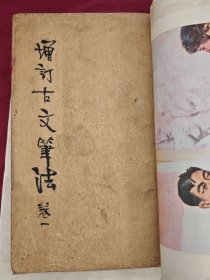 增訂古文筆法 卷一